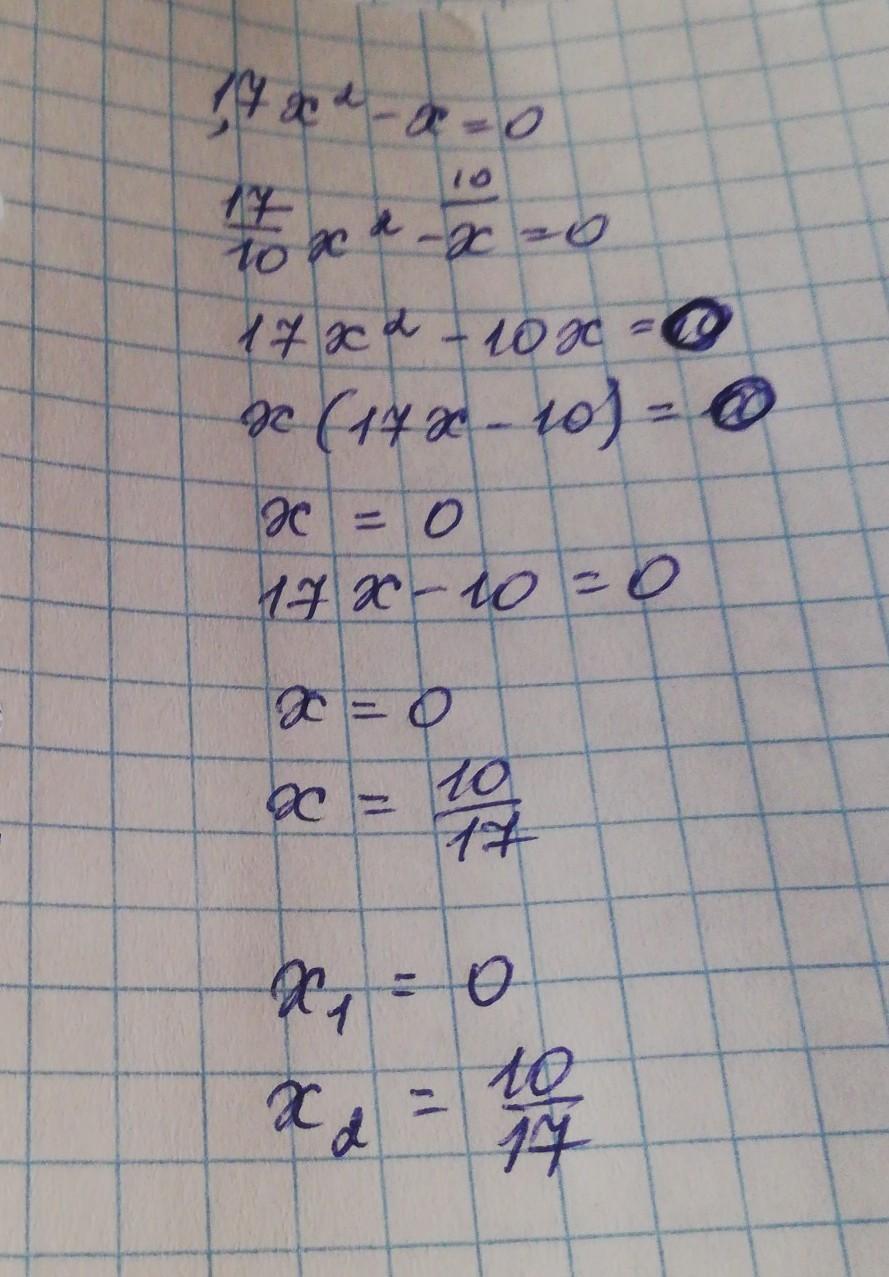 1,7x² - x = 0
17/10 x² - 10/x = 0
17x² - 10x = 0
x(17x - 10) = 0
x = 0
17x - 10 = 0
x = 0
x = 10/17
x₁ = 0
x₂ = 10/17